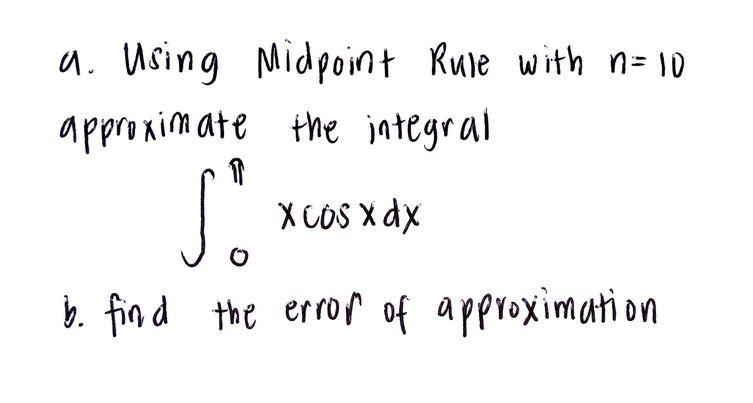 a. Using Midpoint Rule with n=10
approximate the integral
∫₀^π x cos x dx
b. find the error of approximation